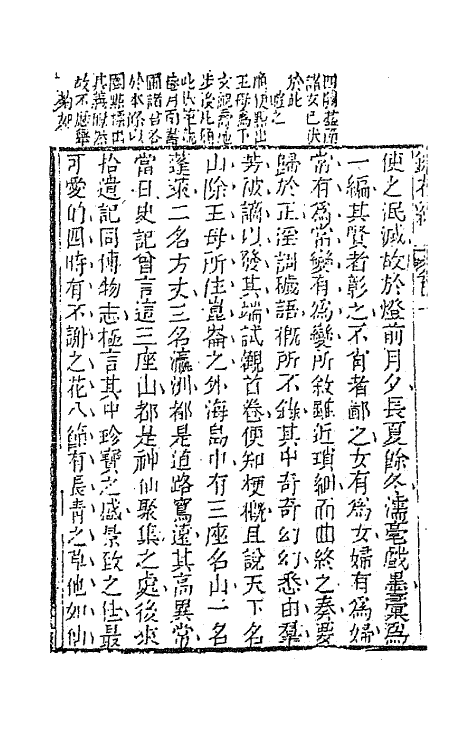 諸女已伏
於此
順便點出
王母爲下
文祝壽地
步後此類
故不應舉
鏡花緣
使之泯滅故於燈前月夕長夏餘冬濡毫戲墨彙爲
一編其賢者彰之不肖者鄙之女有爲女婦有爲婦
常有爲常變有爲變所敘雖近瑣細而曲終之奏要
歸於正淫詞穢語概所不錄其中奇奇幻幻悉由羣
芳被謫以發其端試觀首卷便知梗概且說天下名
山除王母所住崑崙之外海島中有三座名山一名
蓬萊二名方丈三名瀛洲都是道路窵遠其高異常
當日史記曾言這三座山都是神仙聚集之處後來
拾遺記同博物志極言其中珍寶之盛景致之佳最
可愛的四時有不謝之花八節有長青之草他如仙